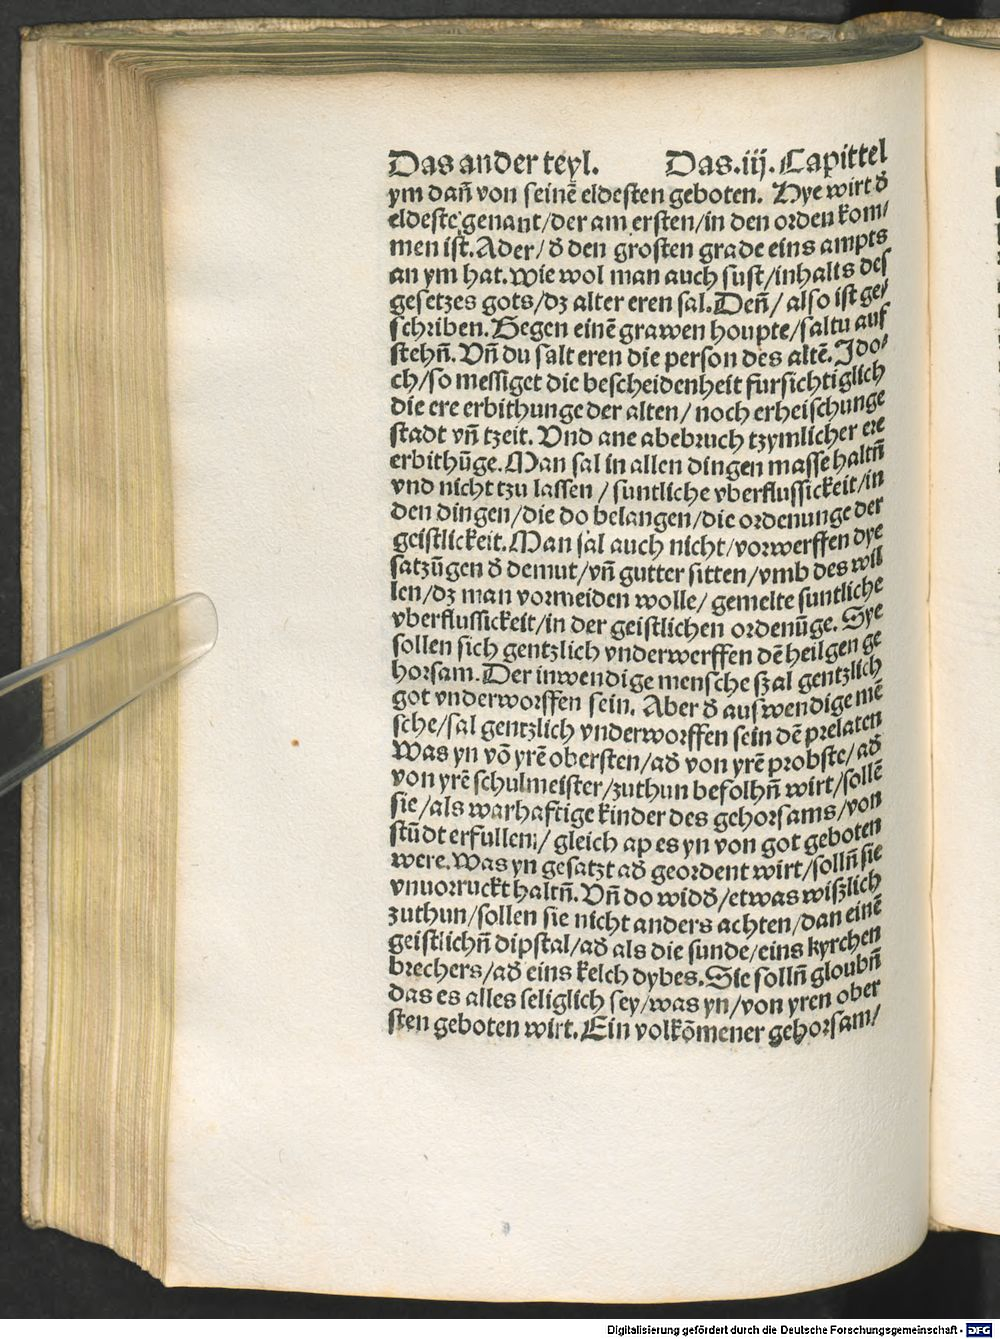 Das ander teyl. Das.iij.Capittel
ym dañ von seinẽ eldesten geboten. Hye wirt đ
eldeste genant/der am ersten/in den orden kom/
men ist.Ader/đ den grosten grade eins ampts
an ym hat.wie wol man auch sust/inhalts des
gesetzes gots/dꝫ alter eren sal.Deñ/ also ist ge/
schriben.Gegen einẽ grawen houpte/saltu auf
stehñ.Vñ du salt eren die person des altẽ.Ido/
ch/so messiget die bescheidenheit fursichtiglich
die ere erbithunge der alten/ noch erheischunge
stadt vñ tzeit. Vnd ane abebruch tzymlicher ere
erbithũge.Man sal in allen dingen masse haltñ
vnd nicht tzu lassen / suntliche vberflussickeit/in
den dingen/die do belangen/die ordenunge der
geistlickeit.Man sal auch nicht/vorwerffen dye
satzũgen đ demut/vñ gutter sitten/vmb des wil
len/dꝫ man vormeiden wolle/ gemelte suntliche
vberflussickeit/in der geistlichen ordenũge. Sye
sollen sich gentzlich vnderwerffen dẽ heilgen ge
horsam.Der inwendige mensche szal gentzlich
got vnderworffen sein. Aber đ auswendige mẽ
sche/sal gentzlich vnderworffen sein dẽ prelaten
Was yn võ yrẽ obersten/ađ von yrẽ probste/ađ
von yrẽ schulmeister/zuthun befolhñ wirt/sollẽ
sie/als warhaftige kinder des gehorsams/von
stũdt erfullen/ gleich ap es yn von got geboten
were.Was yn gesatzt ađ geordent wirt/sollñ sie
vnuorruckt haltñ.Vñ do widđ/etwas wißlich
zuthun/sollen sie nicht anders achten/dan einẽ
geistlichñ dipstal/ađ als die sunde/eins kyrchen
brechers/ađ eins kelch dybes.Sie sollñ gloubñ
das es alles seliglich sey/was yn/von yren ober
sten geboten wirt.Ein volkõmener gehorsam/
Digitalisierung gefördert durch die Deutsche Forschungsgemeinschaft - DFG